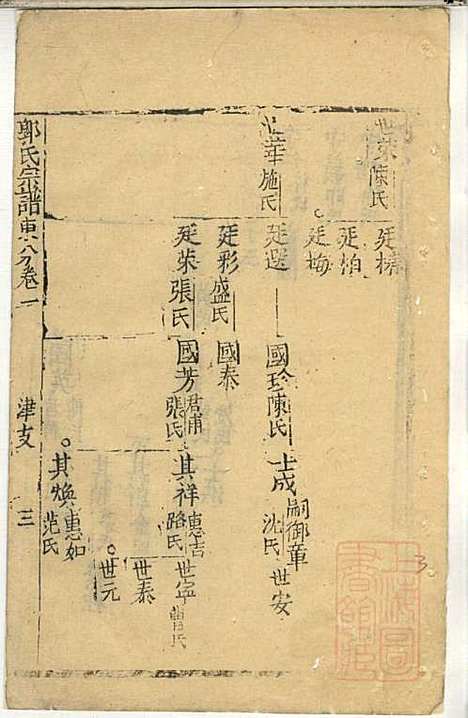 世榮陳氏
廷榜
廷怕
廷梅
世華施氏
廷選
國珍陳氏
士成嗣御章
沈氏
世安
廷彩盛氏
國泰
廷榮張氏
國芳君甫
張氏
其祥惠吉
路氏
世寧曹氏
世泰
世元
其煥惠如
范氏
鄭氏宗譜東六分卷一
津支
三